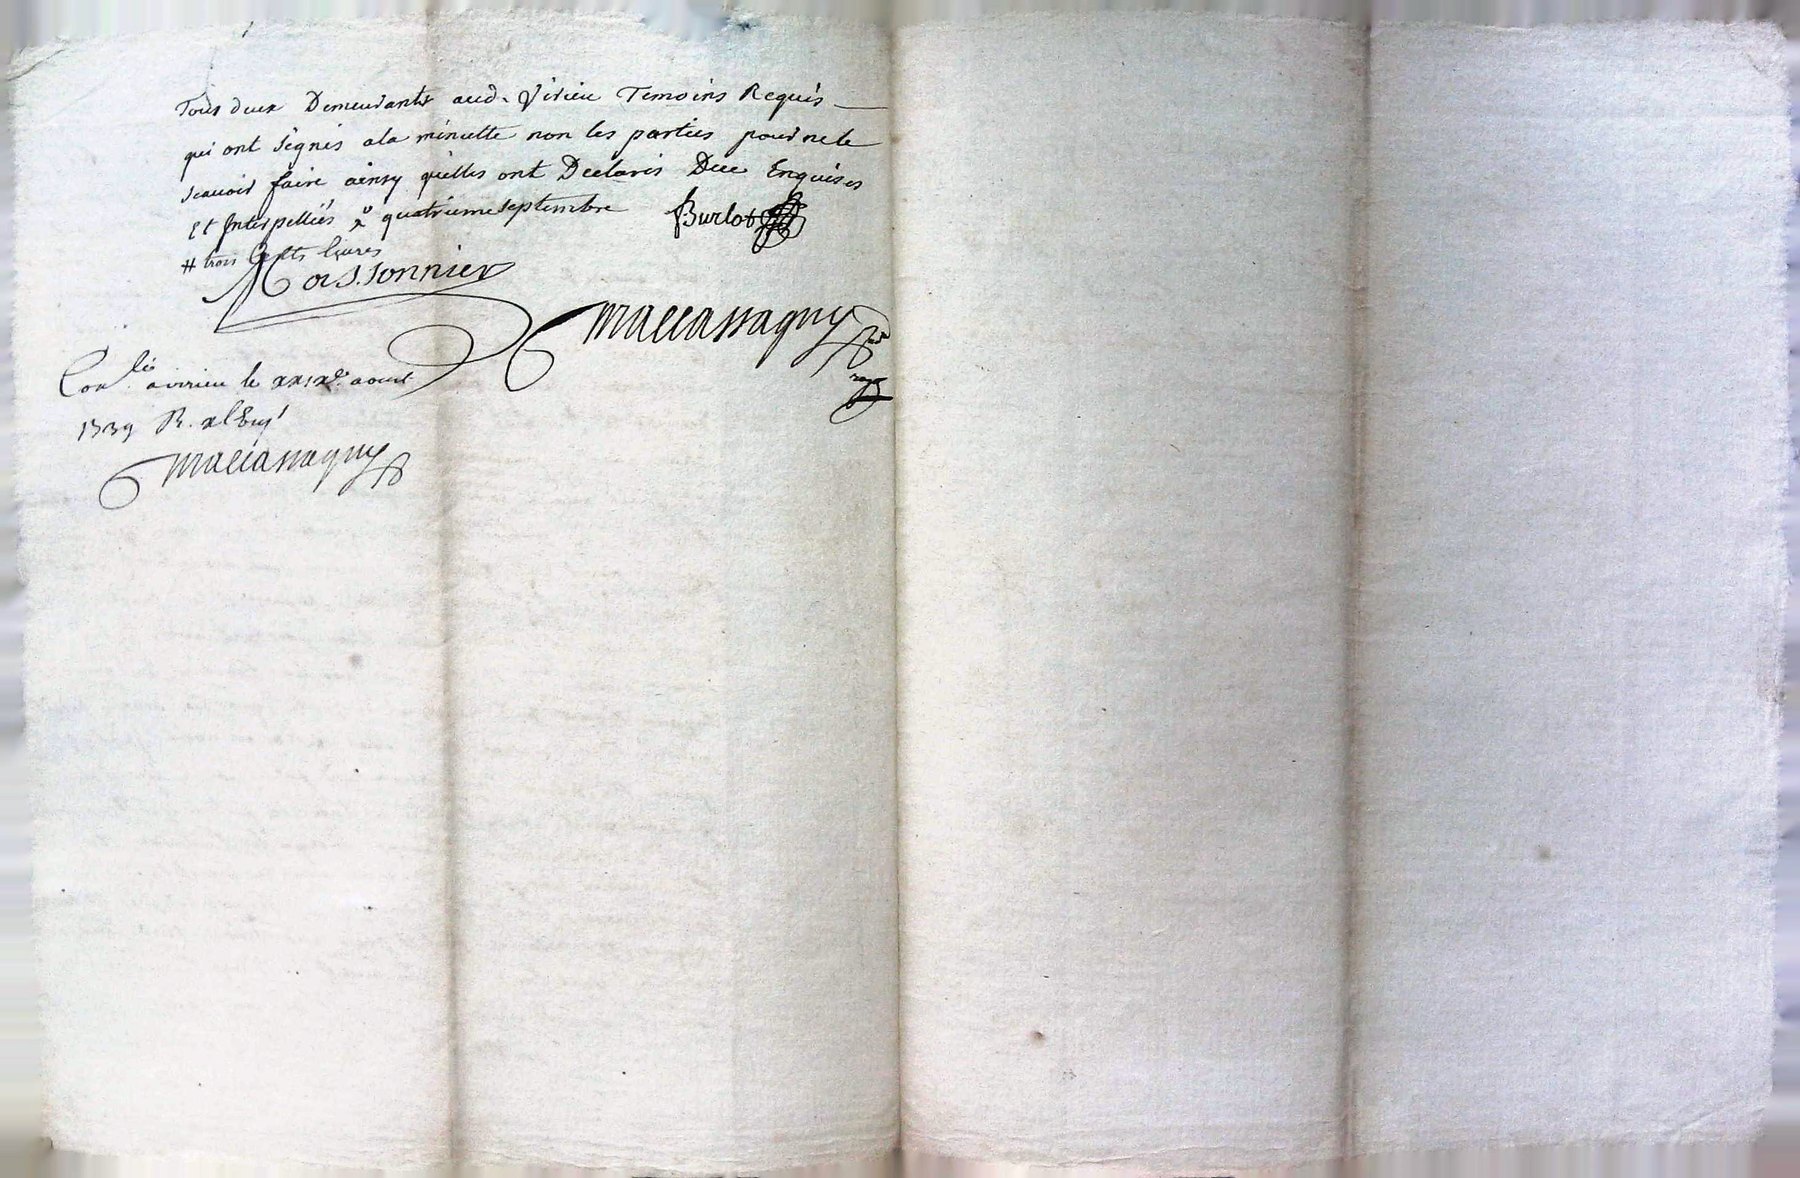 Tous deux Demeurants aud. Virieu Temoins Requis
qui ont signés a la minutte non les parties pour ne le
scauoir faire ainsy qu'elles ont Declarés Dee Enquises
Et Interpellées quatrieme septembre Burlot
# trois Cents liures
Moissonnier
Maccassagny
Con.lé a virieu le xxixe. aoust
1739 R.
Maccassagny